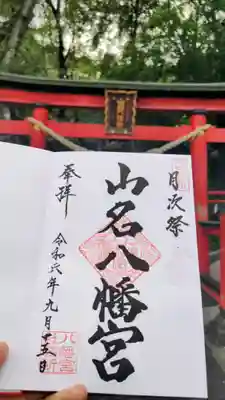 月次祭
山名八幡宮
奉拝
令和六年九月十五日